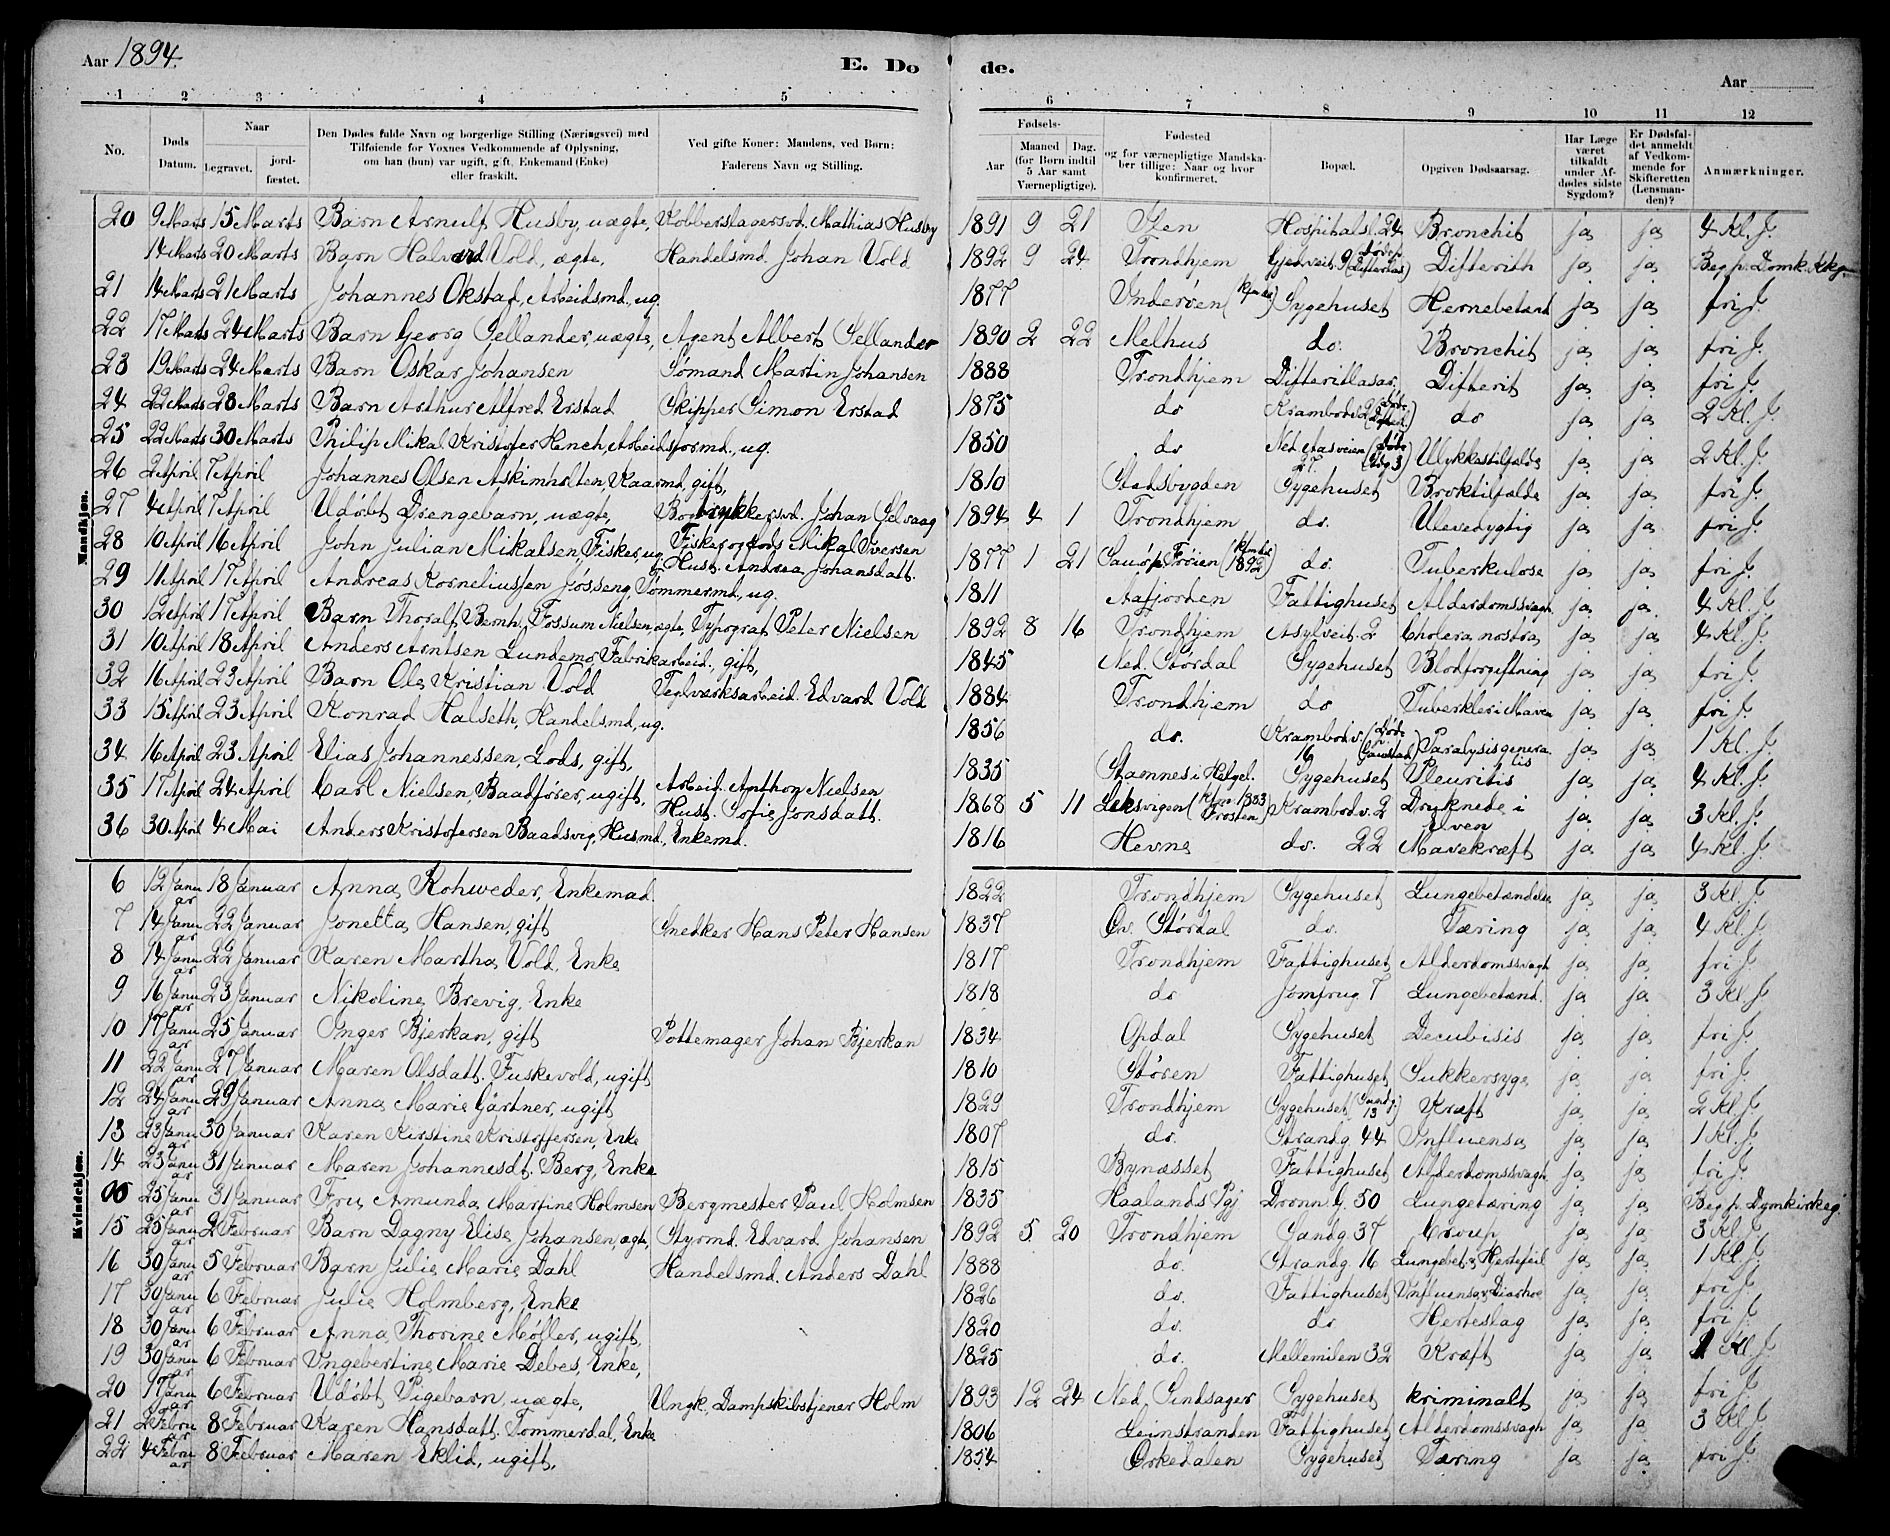 Aar 1894.
E. Dø
de.
Aar
1 2 3 4 5 6 7 8 9 10 11 12
No.
Døds Datum.
Naar
begravet.
jordfæstet.
Den Dødes fulde Navn og borgerlige Stilling (Næringsvei) med
Tilføiende for Voxnes Vedkommende af Oplysning,
om han (hun) var ugift, gift, Enkemand (Enke)
eller fraskilt.
Ved gifte Koner: Mandens, ved Børn:
Faderens Navn og Stilling.
Fødsels-
Aar
Maaned Dag.
(for Børn indtil
5 Aar samt
Værnepligtige).
Fødested
og for værnepligtige Mandska-
ber tillige: Naar og hvor
konfirmeret.
Bopæl.
Opgiven Dødsaarsag.
Har Læge
været
tilkaldt
under Af-
dødes sidste
Sygdom?
Er Dødsfal-
det anmeldt
af Vedkom-
mende for
Skifteretten
(Lensman-
den)?
Anmærkninger.
Mandkjøn.
20 9 Marts 15 Marts Barn Arnulf Husby, uægte, Kobberslagersvd. Mathias Husby 1891 9 21 Ilen Hospitalsl. 24 Bronchit ja ja 4 Kl. J.
14 Marts 20 Marts Barn Halvard Vold, ægte, Handelsmd. Johan Vold 1892 9 24 Trondhjem Gjetveit. 9 Difterith ja ja Beg. p. Domk. Kkg.
21 14 Marts 21 Marts Johannes Okstad, Arbeidsmd, ug. 1877 Inderøen Sygehuset Hernebetænd ja ja fri J.
22 17 Marts 24 Marts Barn Georg Sellander, uægte, Agent Albert Sellander 1890 2 22 Melhus do. Bronchit ja ja fri J.
23 19 Marts 24 Marts Barn Oskar Johansen Sømand Martin Johansen 1888 Trondhjem Difteritlasar. Difterit ja ja fri J.
24 22 Marts 28 Marts Barn Arthur Alfred Erstad Skipper Simon Erstad 1875 do Krambodv. 2 do ja ja 2 Kl. J.
25 22 Marts 30 Marts Philip Mikal Kristofer Hench, Arbeidsformd., ug. 1850 do Ned. Aasveien 27. Ulykkestilfælde ja ja 2 Kl. J.
26 2 April 7 April Johannes Olsen Askimholten, Kaarmd, gift, 1810 Stadsbygden Sygehuset Broktilfælde ja ja fri J.
27 4 April 7 April Udøbt Drengebarn, uægte, Bogtrykkersvd. Johan Selvaag 1894 4 1 Trondhjem do. Ulevedygtig ja ja fri J.
28 10 April 16 April John Julian Mikalsen, Fisker, ug. Fisker og Lods Mikal Iversen Hust. Andrea Johansdatt. 1877 1 21 Sauø p. Frøien (Kfmeret 1892) do. Tuberkulose ja ja fri J.
29 11 April 17 April Andreas Korneliussen Jøsseng, Tømmermd, ug. 1811 Aafjorden Fattighuset Alderdomssvagh. ja ja 4 Kl. J.
30 12 April 17 April Barn Thoralf Bernh. Fossum Nielsen, ægte, Typograf Peter Nielsen 1892 8 16 Trondhjem Asylveit. 2 Cholera nostra ja ja 4 Kl. J.
31 10 April 18 April Anders Arntsen Lundemo, Fabrikarbeid., gift, 1845 Ned. Størdal Sygehuset Blodforgiftning ja ja fri J.
32 16 April 23 April Barn Ole Kristian Vold Teglværksarbeid. Edvard Vold 1884 Trondhjem do Tuberkler i Maven ja ja fri J.
33 15 April 23 April Konrad Halseth, Handelsmd, ug. 1856 do. Krambodv. 16 (Døde Gaustad) Paralysis generalis ja ja 1 Kl. J.
34 16 April 23 April Elias Johannessen, Lods, gift, 1835 Stamnes i Helgel. Sygehuset Pleuritis ja ja 4 Kl. J.
35 17 April 24 April Carl Nielsen, Baadfører, ugift, Arbeid. Anthon Nielsen Hust. Sofie Jonsdatt. 1868 5 11 Leksvigen (Kfm. 1883 Frosten) Krambodv. 2 Druknede i Elven ja ja 3 Kl. J.
36 30 April 4 Mai Anders Kristofersen Baadsvig, Husmd., Enkemd. 1816 Hevne do. 22 Mavekræft ja ja 4 Kl. J.
Kvindekjøn.
6 12 Januar 18 Januar Anna Rohweder, Enkemad. 1822 Trondhjem Sygehuset Lungebetændelse ja ja 3 Kl. J.
7 14 Januar 22 Januar Jonetta Hansen, gift Snedker Hans Peter Hansen 1837 Øv. Størdal do. Tæring ja ja 4 Kl. J.
8 14 Januar 22 Januar Karen Martha Vold, Enke 1817 Trondhjem Fattighuset Alderdomssvagh ja ja fri J.
9 16 Januar 23 Januar Nikoline Brevig, Enke 1818 do Jomfrug. 7 Lungebetænd. ja ja 3 Kl. J.
10 17 Januar 25 Januar Inger Bjerkan, gift Pottemager Johan Bjerkan 1834 Opdal Sygehuset Decubisis ja ja fri J.
11 22 Januar 27 Januar Maren Olsdatt. Fuskevold, ugift 1810 Støren Fattighuset Sukkersyge ja ja fri J.
12 24 Januar 29 Januar Anna Marie Gärtner, ugift 1829 Trondhjem Sygehuset (Sandg. 13) Kræft ja ja 2 Kl. J.
13 23 Januar 30 Januar Karen Kirstine Kristoffersen, Enke 1807 do. Strandg. 44 Influensa ja ja 1 Kl. J.
14 23 Januar 31 Januar Maren Johannesdt. Berg, Enke 1815 Bynæsset Fattighuset Alderdomssvagh ja ja fri J.
25 Januar 31 Januar Fru Amunda Martine Holmsen Bergmester Paul Holmsen 1835 Haalands Pgj Dronn. G. 50 Lungetæring ja ja Beg. p. Domkirkeg.
15 25 Januar 2 Februar Barn Dagny Elise Johansen, ægte, Styrmd. Edvard Johansen 1892 5 20 Trondhjem Sandg. 37 Croup ja ja 3 Kl. J.
16 30 Januar 5 Februar Barn Julie Marie Dahl Handelsmd. Anders Dahl 1888 do. Strandg. 16 Lungebet. & Hjertefeil ja ja 1 Kl. J.
17 30 Januar 6 Februar Julie Holmberg, Enke 1826 do. Fattighuset Influensa & Diarhoe ja ja fri J.
18 30 Januar 6 Februar Anna Thorine Møller, ugift, 1820 do. do. Herteslag ja ja fri J.
19 30 Januar 6 Februar Ingebertine Marie Debes, Enke, 1825 do. Mellemilen 32 Kræft ja ja 1 Kl. J.
20 17 Januar 6 Februar Udøbt Pigebarn, uægte, Ungk. Dampskibstjener Holm 1893 12 24 Ned. Sindsager Sygehuset kriminalt ja ja fri J.
21 2 Februar 8 Februar Karen Hansdatt. Tommerdal, Enke 1806 Leinstranden Fattighuset Alderdomssvagh ja ja 3 Kl. J.
22 4 Februar 8 Februar Maren Eklid, ugift. 1854 Orkedalen Sygehuset Tæring ja ja fri J.